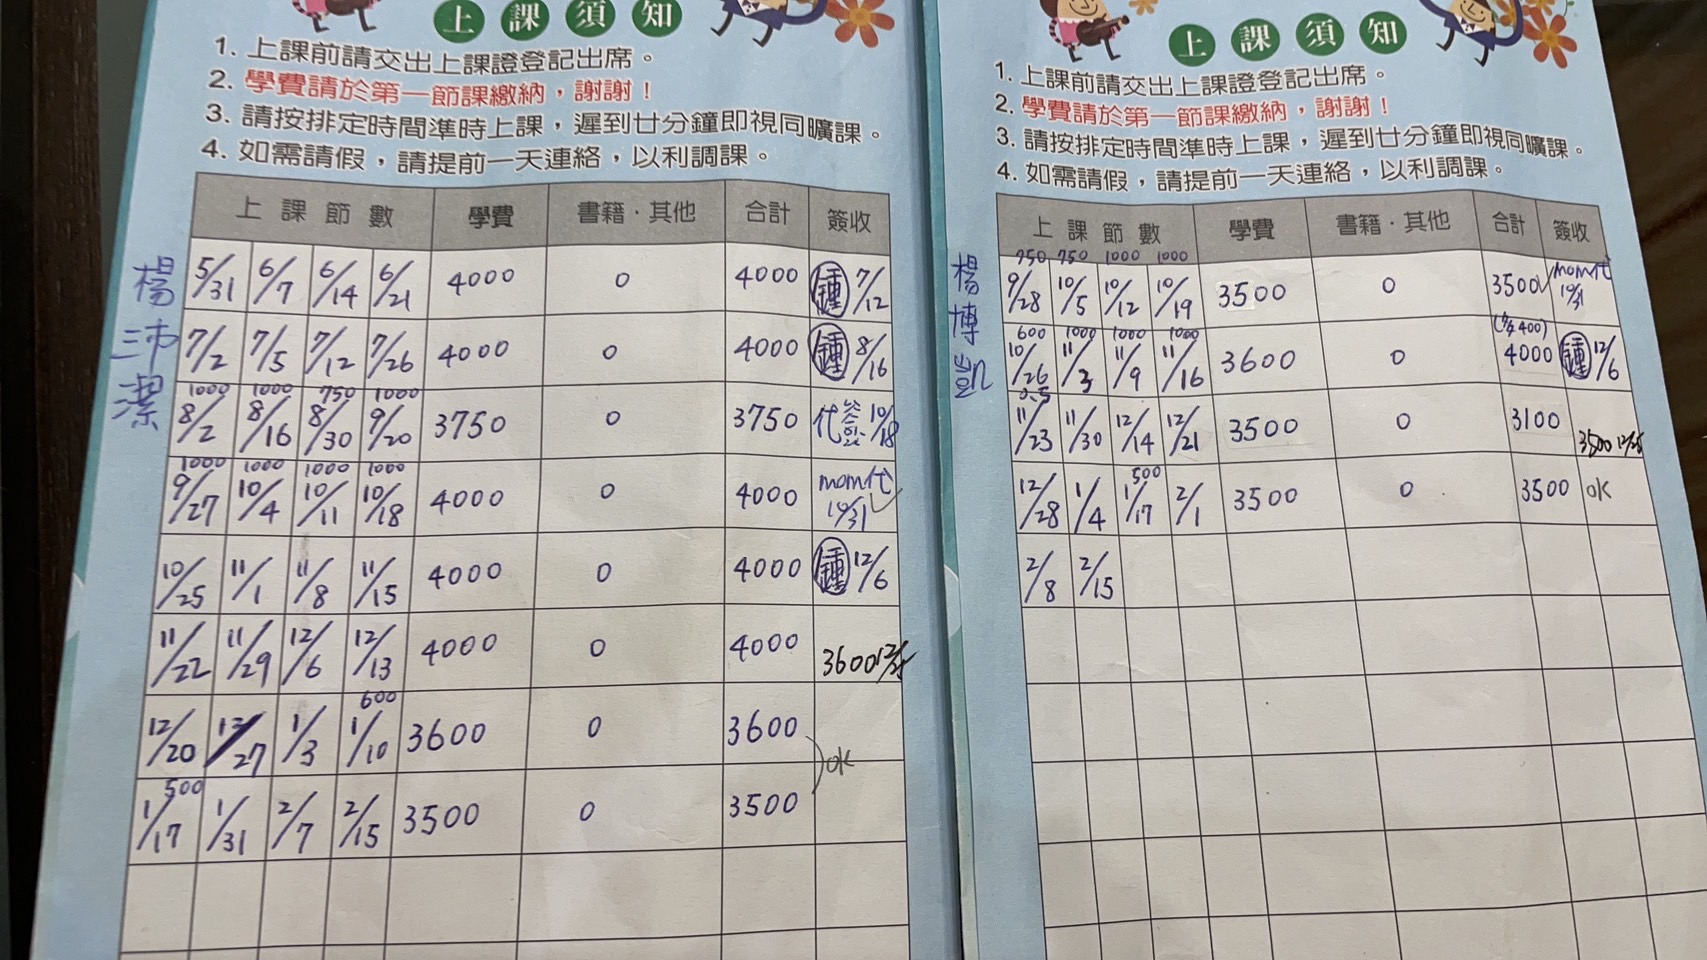 上課須知
1. 上課前請交出上課證登記出席。
2. 學費請於第一節課繳納，謝謝！
3. 請按排定時間準時上課，遲到廿分鐘即視同曠課。
4. 如需請假，請提前一天連絡，以利調課。
楊沛潔
上課節數 學費 書籍．其他 合計 簽收
5/31 6/7 6/14 6/21 4000 0 4000 鍾 7/12
7/2 7/5 7/12 7/26 4000 0 4000 鍾 8/16
1000 1000 750 1000
8/2 8/16 8/30 9/20 3750 0 3750 代簽 10/18
1000 1000 1000 1000
9/27 10/4 10/11 10/18 4000 0 4000 mom代 10/31
10/25 11/1 11/8 11/15 4000 0 4000 鍾 12/6
11/22 11/29 12/6 12/13 4000 0 4000 3600
600
12/20 12/27 1/3 1/10 3600 0 3600
OK
500
1/17 1/31 2/7 2/15 3500 0 3500
上課須知
1. 上課前請交出上課證登記出席。
2. 學費請於第一節課繳納，謝謝！
3. 請按排定時間準時上課，遲到廿分鐘即視同曠課。
4. 如需請假，請提前一天連絡，以利調課。
楊博凱
上課節數 學費 書籍．其他 合計 簽收
750 750 1000 1000
9/28 10/5 10/12 10/19 3500 0 3500 mom代 10/31
600 1000 1000 1000 400)
10/26 11/3 11/9 11/16 3600 0 4000 鍾 12/6
0.5
11/23 11/30 12/14 12/21 3500 0 3100 3500
500
12/28 1/4 1/17 2/1 3500 0 3500 OK
2/8 2/15